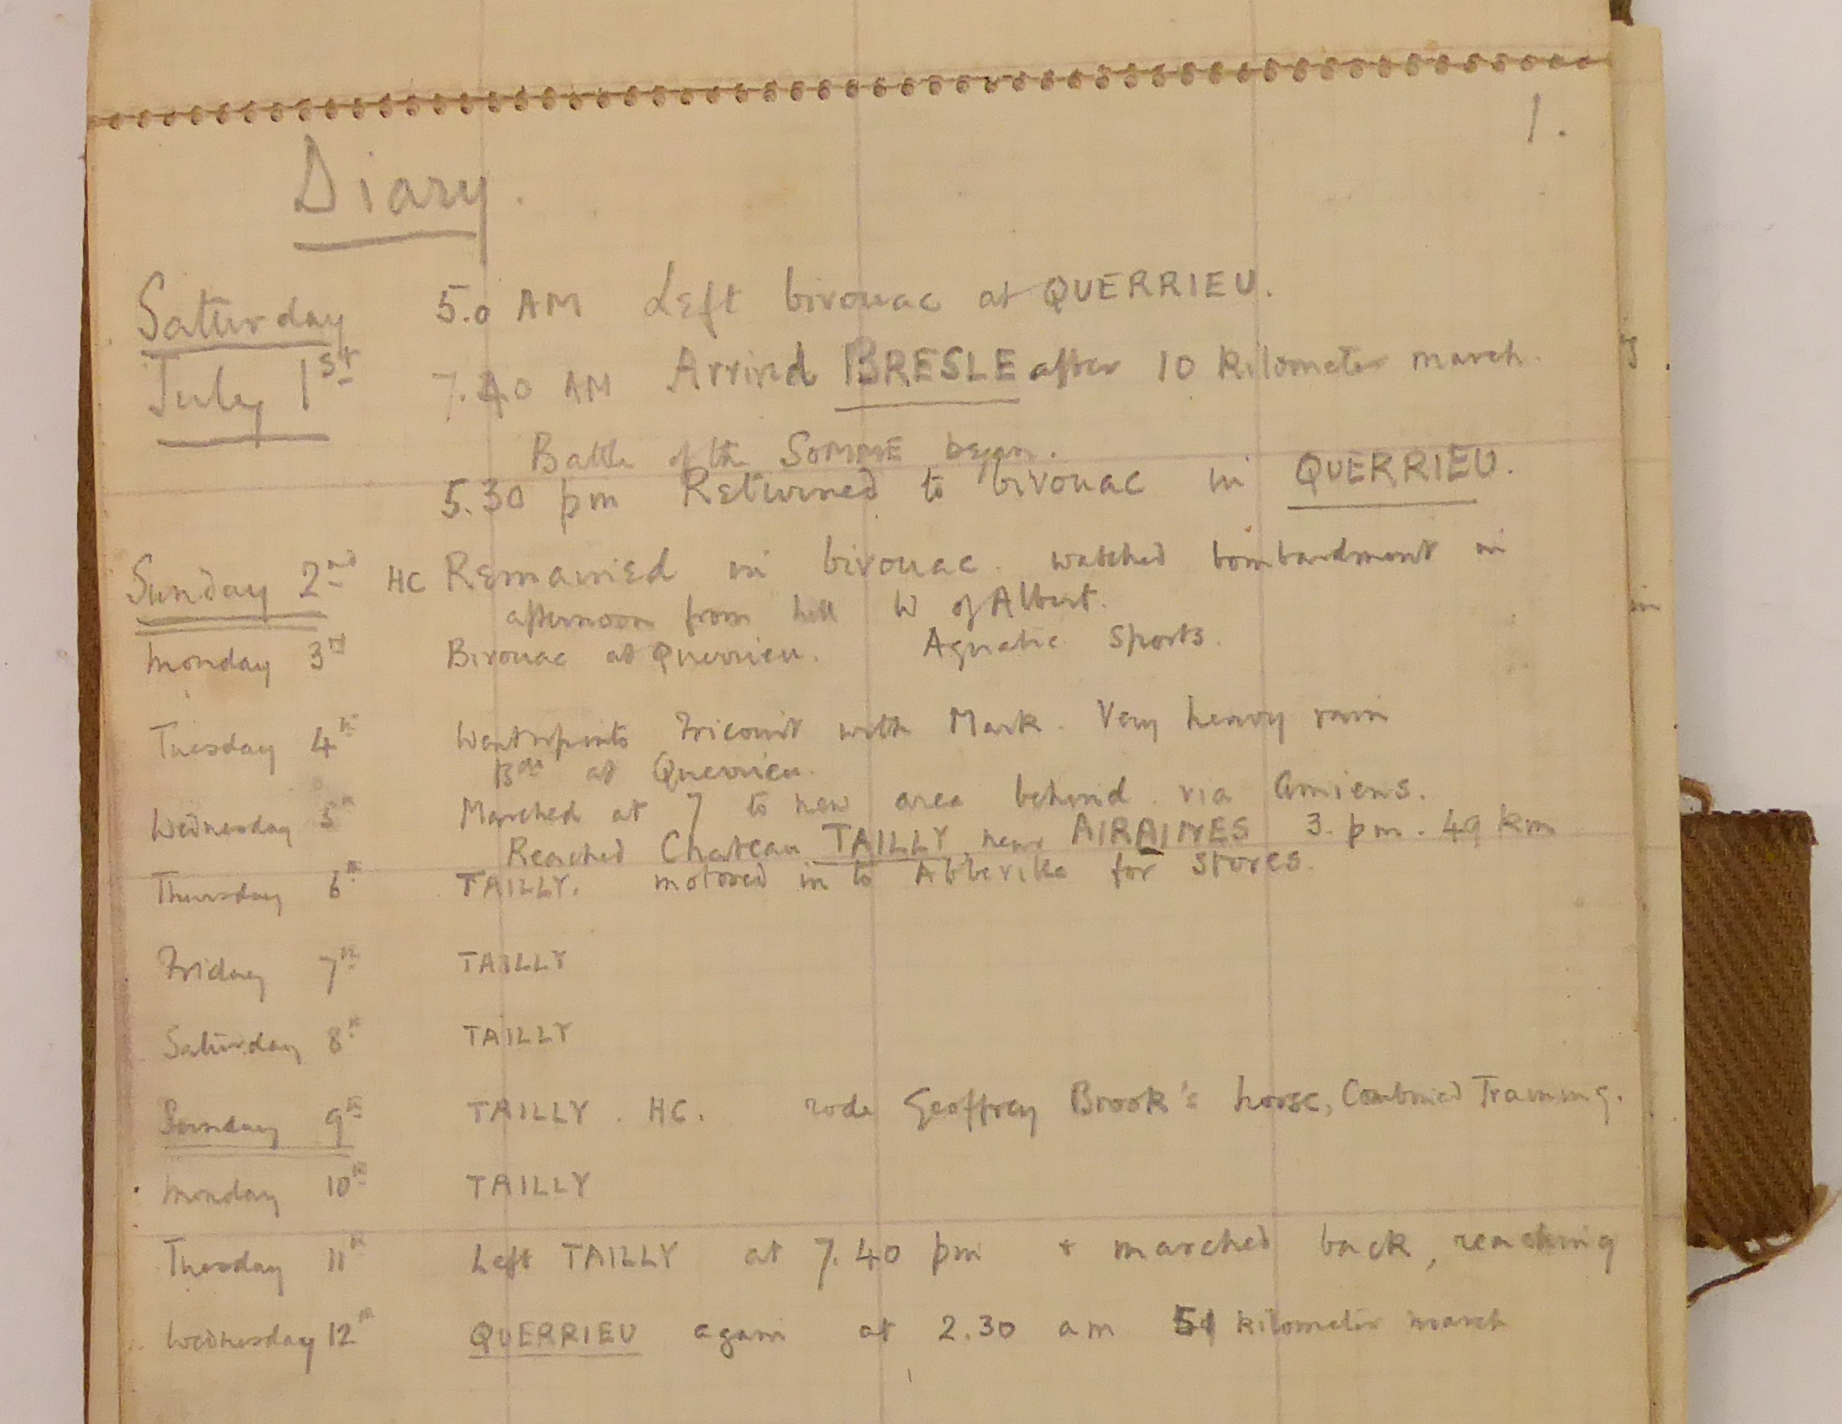 1.
Diary.
Saturday 5.0 AM Left bivouac at QUERRIEU.
July 1st 7.40 AM Arrived BRESLE after 10 kilometer march.
Battle of the SOMME began.
5.30 pm Returned to bivouac in QUERRIEU.
Sunday 2nd HC Remained in bivouac. watched bombardment in
afternoon from hill W of Albert.
Monday 3rd Bivouac at Querrieu. Aquatic Sports.
Tuesday 4th Went into Fricourt with Mark. Very heavy rain
Bde at Querrieu.
Wednesday 5th Marched at 7 to new area behind via Amiens.
Reached Chateau TAILLY near AIRAINES 3. pm. 49 km
Thursday 6th TAILLY. motored in to Abbeville for stores.
Friday 7th TAILLY
Saturday 8th TAILLY
Sunday 9th TAILLY. HC. rode Geoffrey Brook's horse, Combined Training.
Monday 10th TAILLY
Tuesday 11th Left TAILLY at 7.40 pm + marched back, reaching
Wednesday 12th QUERRIEU again at 2.30 am 51 kilometer march